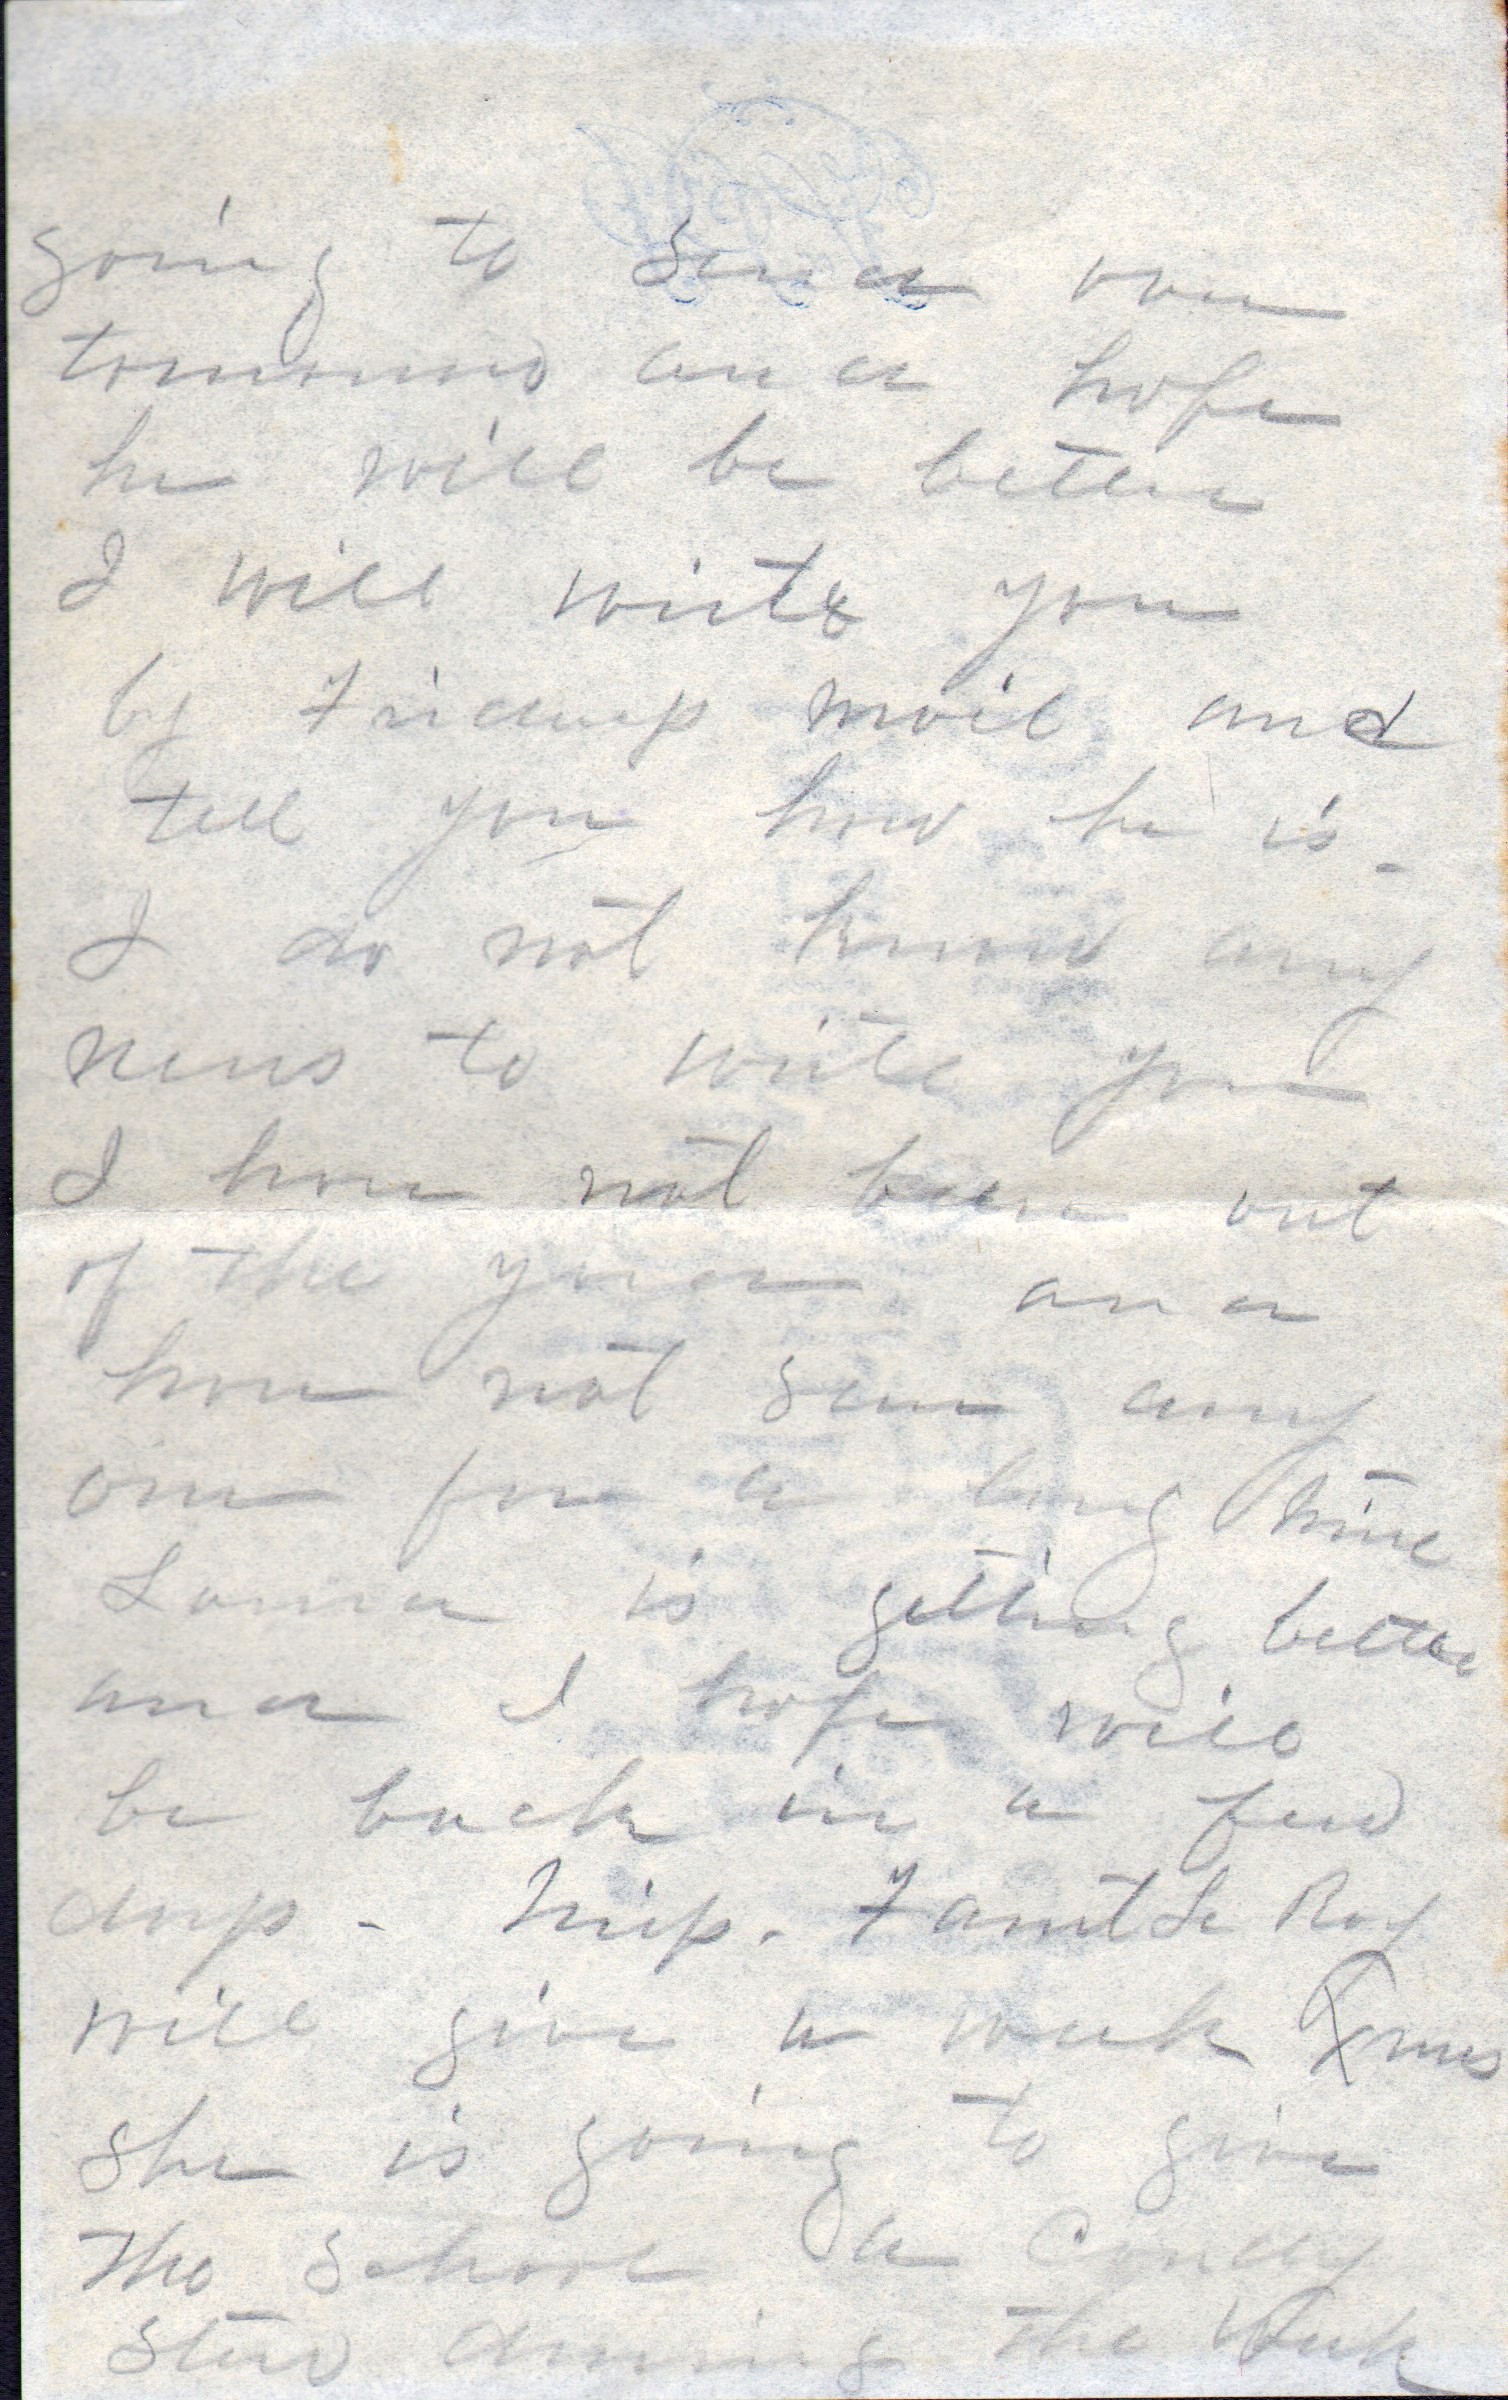 going to send over
tomorrow and hope
he will be better
I will write you
by Fridays mail and
tell you how he is -
I do not know any
news to write you
I have not been out
of the yard and
have not seen any
one for a long time
is getting better
and I hope will
be back in a few
days - Miss. Le Roy
will give a week Xmas
She is going to give
the School a Candy
stew during the week